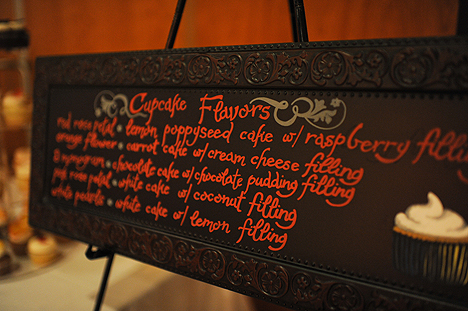 Cupcake Flavors
red rose petal • lemon poppyseed cake w/ raspberry filling
orange flower • carrot cake w/ cream cheese filling
B monogram • chocolate cake w/ chocolate pudding filling
pink rose petal • white cake w/ coconut filling
white pearls • white cake w/ lemon filling